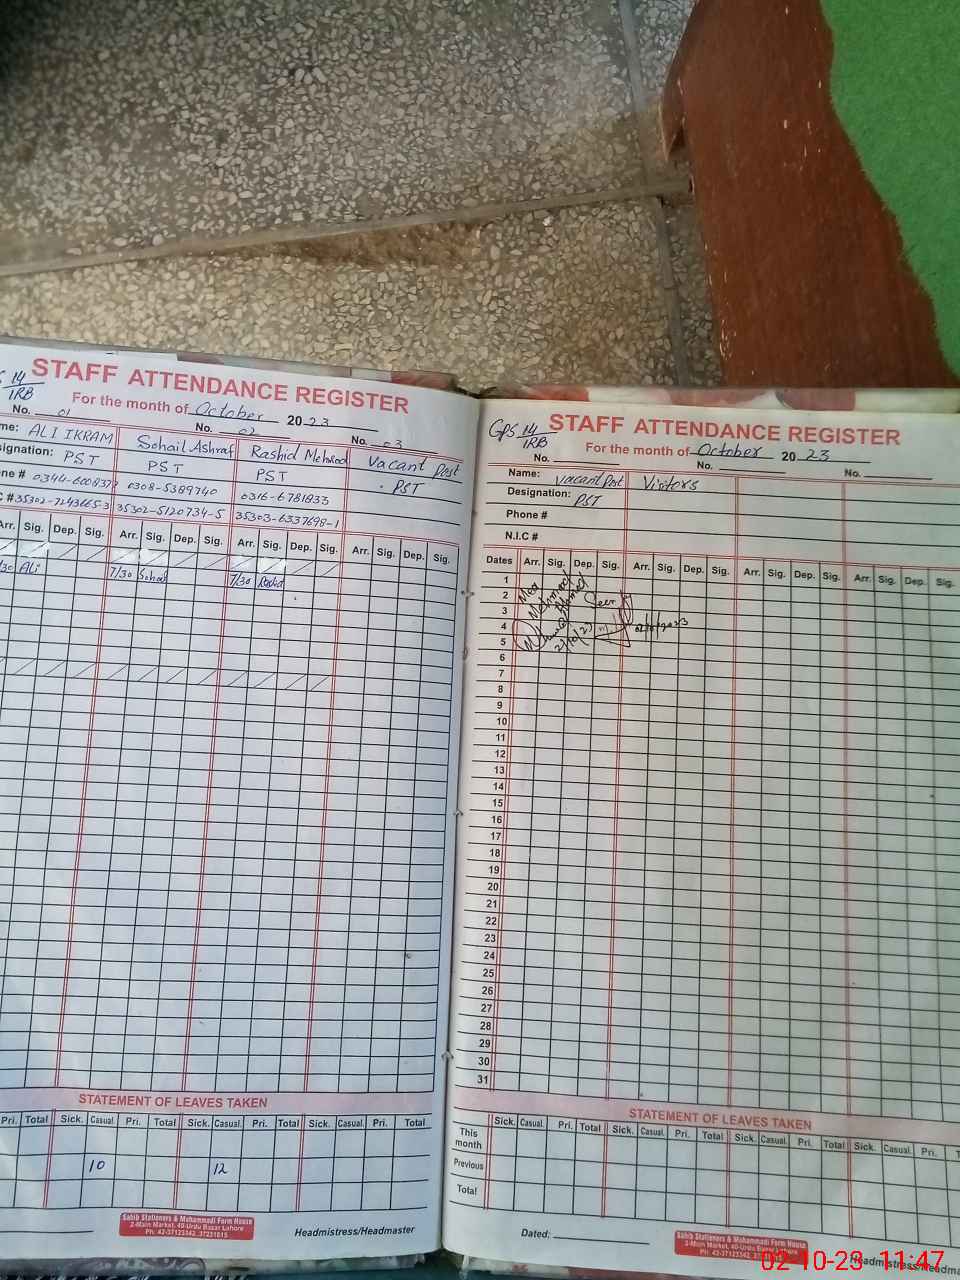 14
IRB
STAFF ATTENDANCE REGISTER
For the month of October 2023
No. 01 No. 02 No. 03
me: ALI IKRAM Sohail Ashraf Rashid Mehmood Vacant Post
signation: PST PST PST PST
one # 0344-600837 0308-5389740 0316-6781833
C # 35302-7243665-3 35302-5120734-5 35303-6337698-1
Arr. Sig. Dep. Sig. Arr. Sig. Dep. Sig. Arr. Sig. Dep. Sig. Arr. Sig. Dep. Sig.
/30 Ali 7/30 Sohail 7/30 Rashid
STATEMENT OF LEAVES TAKEN
Pri. Total Sick. Casual. Pri. Total Sick. Casual. Pri. Total Sick. Casual. Pri. Total
10 12
Sahib Stationers & Mohammadi Form House
2-Main Market, 40-Urdu Bazar Lahore
Ph: 42-37123342, 37231015
Headmistress/Headmaster
GPS 14
IRB
STAFF ATTENDANCE REGISTER
For the month of October 2023
No. No. No.
Name: Vacant Post Visitors
Designation: PST
Phone #
N.I.C #
Dates Arr. Sig. Dep. Sig. Arr. Sig. Dep. Sig. Arr. Sig. Dep. Sig. Arr. Sig. Dep. Sig.
1
2
3
4
5
Mehmood Ahmed
2/10/23
Seen
02/10/2023
6
7
8
9
10
11
12
13
14
15
16
17
18
19
20
21
22
23
24
25
26
27
28
29
30
31
STATEMENT OF LEAVES TAKEN
Sick. Casual. Pri. Total Sick. Casual. Pri. Total Sick. Casual. Pri. Total Sick. Casual. Pri.
This month
Previous
Total
Dated:
Sahib Stationers & Mohammadi Form House
2-Main Market, 40-Urdu Bazar Lahore
Ph: 42-37123342, 37231015
Headmistress/Headma
02-10-23 11:47